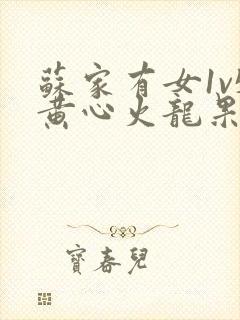 蘇家有女1v
黄心火龍果
寶春兒